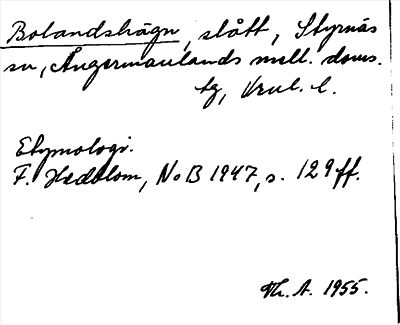 Bolandshägn, slått, Styrnäs
sn, Ångermanlands mell. doms.
tg, Vnl. l.
Etymologi.
F. Hedblom, NoB 1947, s. 129 ff.
Th. A. 1955.